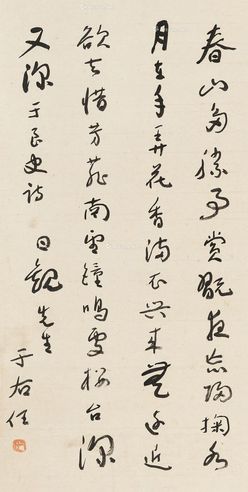 春山多勝事賞翫夜忘歸掬水
月在手弄花香滿衣興來無遠近
欲去惜芳菲南望鐘鳴處樓台深
翠微 于良史詩 日觀先生 于右任